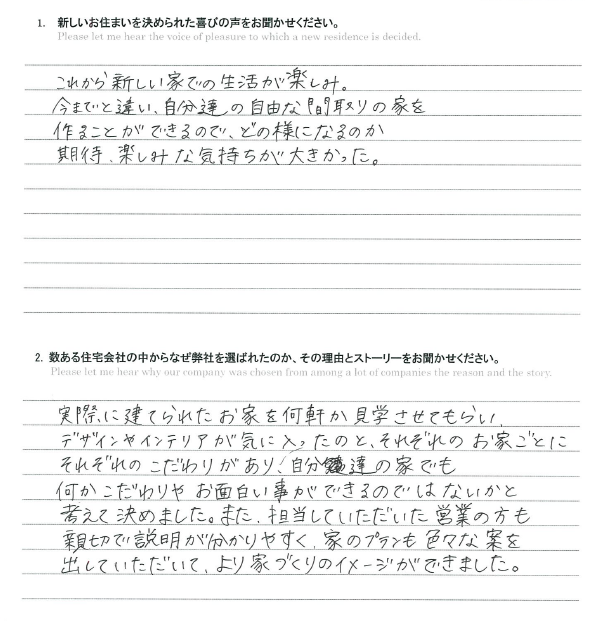 1. 新しいお住まいを決められた喜びの声をお聞かせください。
Please let me hear the voice of pleasure to which a new residence is decided.
これから新しい家での生活が楽しみ。
今までと違い、自分達の自由な間取りの家を
作ることができるので、どの様になるのか
期待、楽しみな気持ちが大きかった。
2. 数ある住宅会社の中からなぜ弊社を選ばれたのか、その理由とストーリーをお聞かせください。
Please let me hear why our company was chosen from among a lot of companies the reason and the story.
実際に建てられたお家を何軒か見学させてもらい、
デザインやインテリアが気に入ったのと、それぞれのお家ごとに
それぞれのこだわりがあり、自分達の家でも
何かこだわりやお面白い事ができるのではないかと
考えて決めました。また、担当していただいた営業の方も
親切で説明が分かりやすく、家のプランも色々な案を
出していただいて、より家づくりのイメージができました。